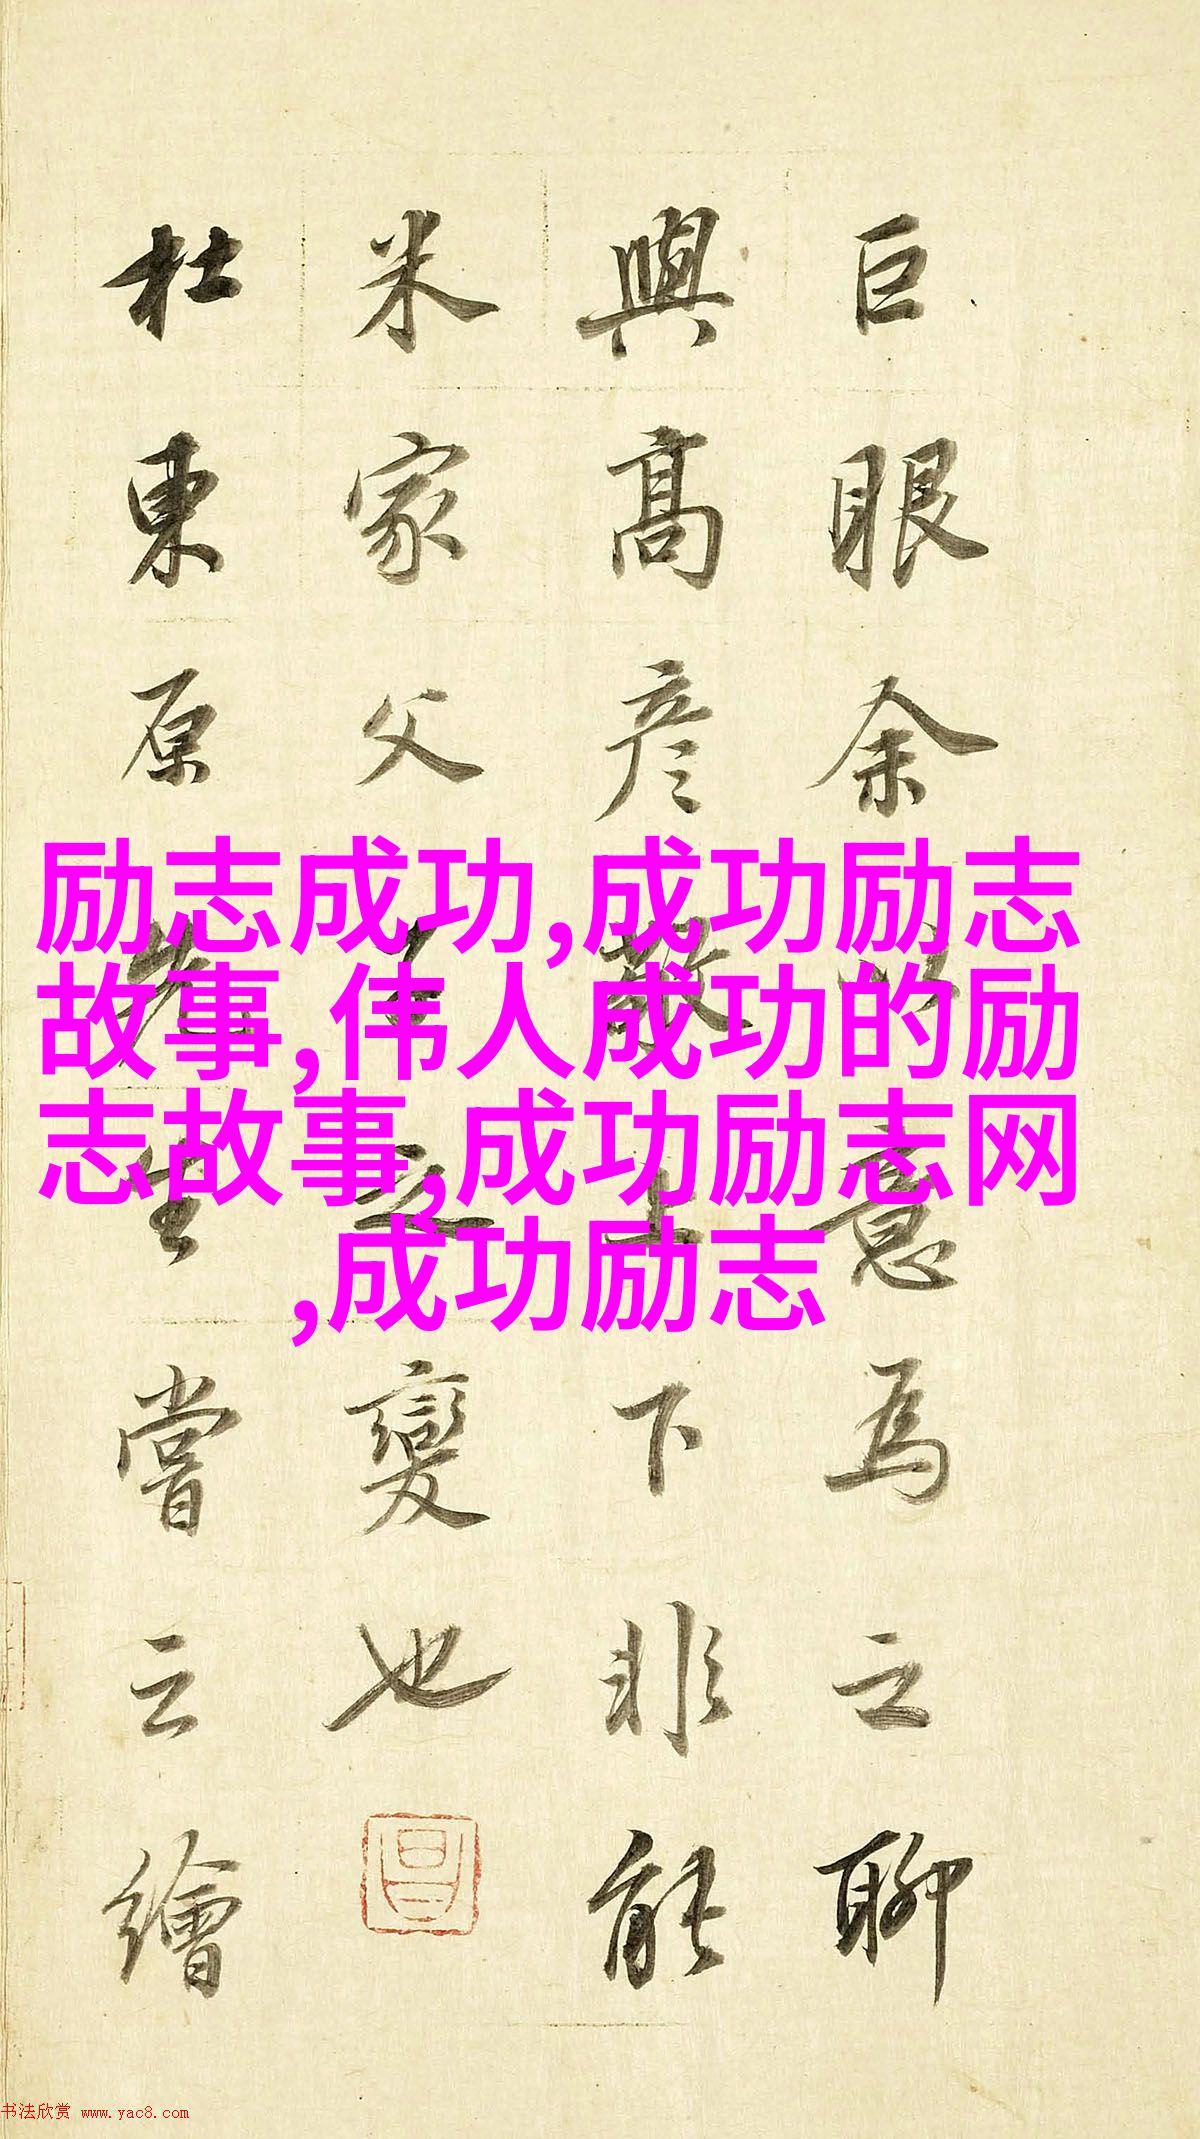 巨眼余以意為之聊
與髙彦敬上下非能
米家父子之變也
杜東原先生嘗云繪
励志成功,成功励志
故事,伟人成功的励
志故事,成功励志网
,成功励志
书法欣赏 www.yac8.com